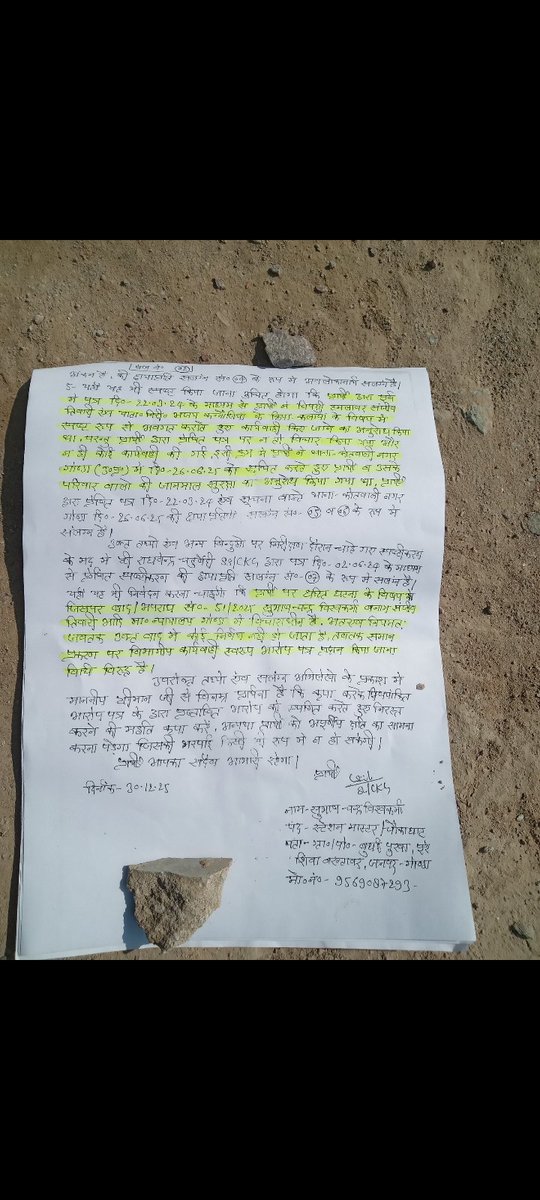 (पेज नं० 03)
5- यहाँ यह भी स्पष्ट किया जाना उचित होगा कि प्रार्थी द्वारा पूर्व
में पत्र दि०-22-03-24 के माध्यम से प्रार्थी ने विपक्षी हमलावर संदीप
स्पष्ट रूप से अवगत कराते हुए कार्यवाही किए जाने का अनुरोध किया
था, परन्तु प्रार्थी द्वारा प्रेषित पत्र पर न ही विचार किया गया और
न ही कोई कार्यवाही की गई, इसी क्रम में प्रार्थी ने थाना-कोतवाली नगर
गोण्डा (उ०प्र०) में दि०-26-06-25 को सूचित करते हुए प्रार्थी व उसके
परिवार वालों की जानमाल सुरक्षा का अनुरोध किया गया था, प्रार्थी
द्वारा प्रेषित पत्र दि०-22-03-24 एवं सूचना वास्ते थाना-कोतवाली नगर
गोण्डा दि०-26-06-25 की छायाप्रतियाँ संलग्न सं०-05 व 06 के रूप में
संलग्न हैं।
उक्त तथ्यों एवं अन्य बिन्दुओं पर निरीक्षण दौरान चाहे गए स्पष्टीकरण
के मद में श्री राघवेन्द्र चतुर्वेदी SS/CKG द्वारा पत्र दि०-02-06-24 के माध्यम
से प्रेषित स्पष्टीकरण की छायाप्रति संलग्न सं०-07 के रूप में संलग्न है।
यहाँ यह भी निवेदन करना चाहूँगा कि प्रार्थी पर घटित घटना के विषय में
जिसपर वाद/अपराध सं०-51/2025 सुभाष चन्द्र विश्वकर्मा बनाम संदीप
तिवारी आदि मा० न्यायालय गोण्डा में विचाराधीन है, अतएव नियमतः
जबतक उक्त वाद में कोई निर्णय नहीं हो जाता है, तबतक समान
प्रकरण पर विभागीय कार्यवाही स्वरूप आरोप पत्र प्रदान किया जाना
विधि विरुद्ध है।
उपरोक्त तथ्यों एवं संलग्न अभिलेखों के प्रकाश में
माननीय श्रीमान जी से विनम्र प्रार्थना है कि कृपा करके
आरोप पत्र के द्वारा प्रस्तावित आरोप को हुए निरस्त
करने की महती कृपा करें, अन्यथा प्रार्थी को अपूर्णीय क्षति का सामना
करना पड़ेगा जिसकी भरपाई किसी भी रूप में न हो सकेगी।
प्रार्थी आपका सदैव आभारी रहेगा।
दिनाँक-30-12-25
प्रार्थी
नाम-सुभाष चन्द्र विश्वकर्मा
पद-स्टेशन मास्टर/चौकाघाट
पता-ग्रा०/पो०-
शिवा बख्तावर, जनपद-गोण्डा
मो०नं०-9569087293-